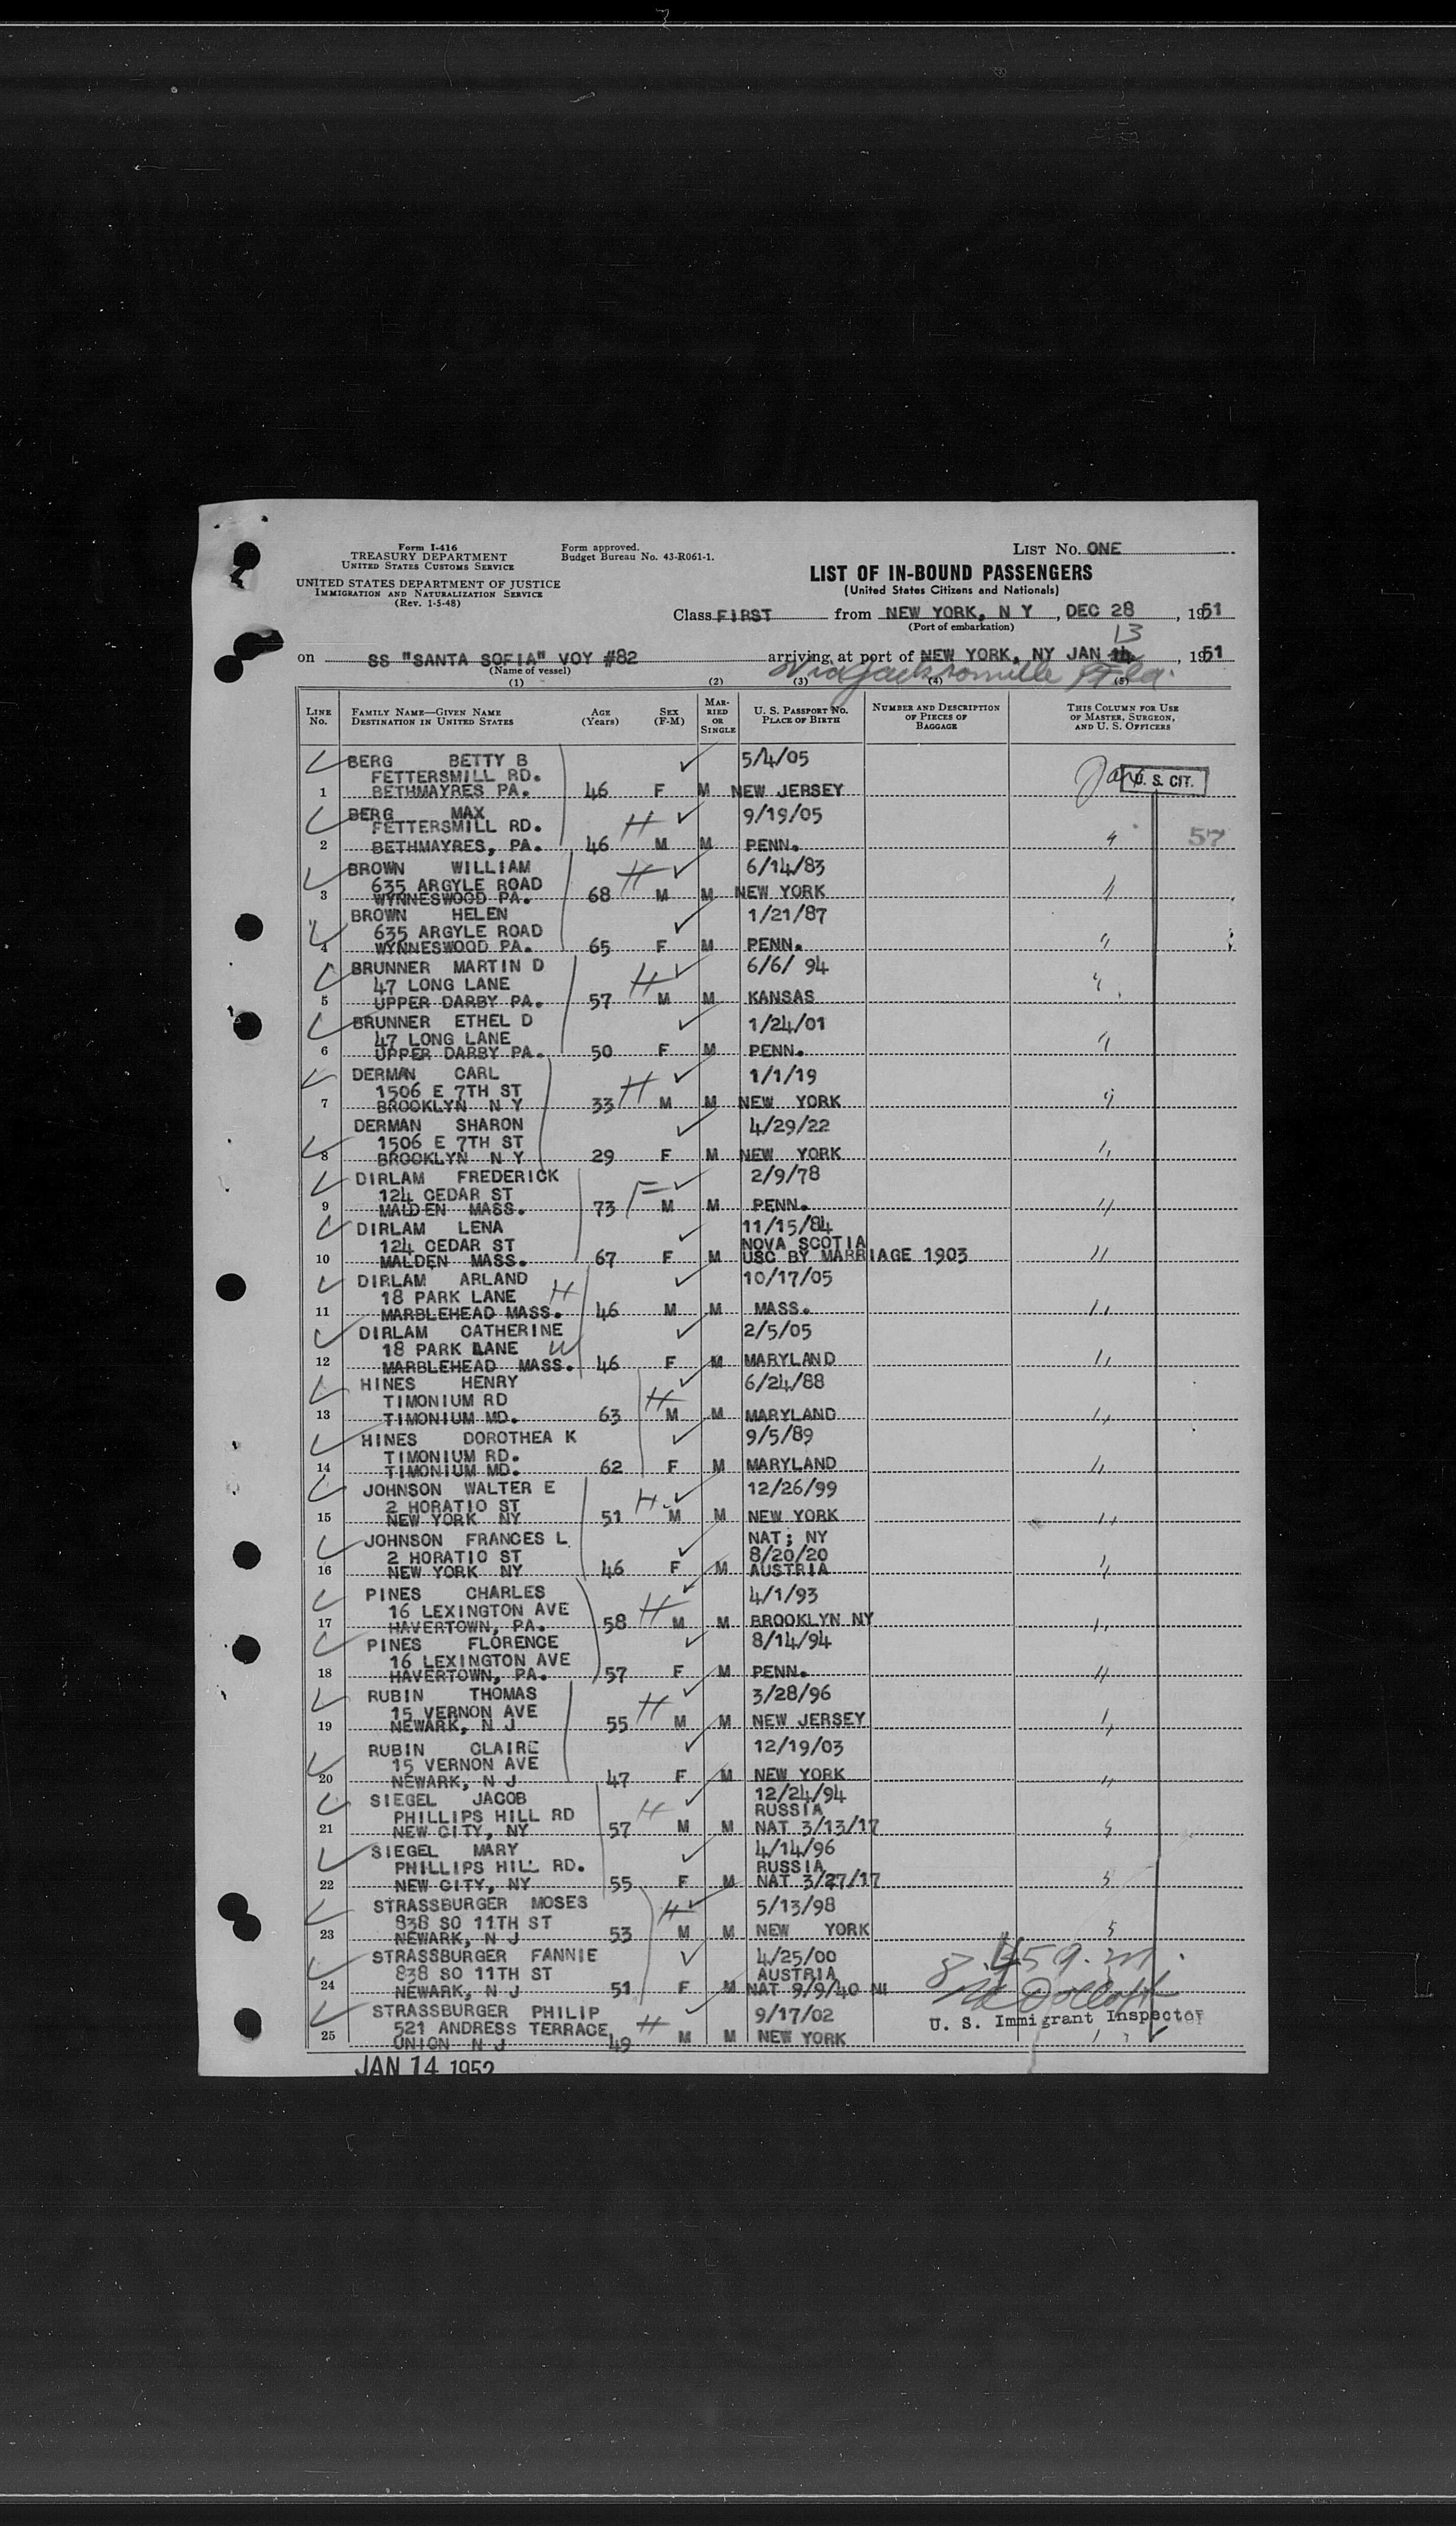 Form I-416
TREASURY DEPARTMENT
UNITED STATES CUSTOMS SERVICE
UNITED STATES DEPARTMENT OF JUSTICE
IMMIGRATION AND NATURALIZATION SERVICE
(Rev. 1-5-48)
Form approved.
Budget Bureau No. 43-R061-1.
LIST No. ONE
LIST OF IN-BOUND PASSENGERS
(United States Citizens and Nationals)
Class FIRST from NEW YORK, N Y, DEC 28, 1951
(Port of embarkation)
13
on SS "SANTA SOFIA" VOY #82 arriving at port of NEW YORK, NY JAN 14, 1951
(Name of vessel)
Via Jacksonville Fla.
(1) (2) (3) (4) (5)
LINE No. FAMILY NAME—GIVEN NAME DESTINATION IN UNITED STATES AGE (Years) SEX (F-M) MARRIED OR SINGLE U. S. PASSPORT No. PLACE OF BIRTH NUMBER AND DESCRIPTION OF PIECES OF BAGGAGE THIS COLUMN FOR USE OF MASTER, SURGEON, AND U. S. OFFICERS
BERG BETTY B 5/4/05
FETTERSMILL RD. U. S. CIT.
1 BETHMAYRES PA. 46 F M NEW JERSEY
BERG MAX 9/19/05
FETTERSMILL RD. H
2 BETHMAYRES, PA. 46 M M PENN. 57
BROWN WILLIAM 6/14/83
635 ARGYLE ROAD H
3 WYNNESWOOD PA. 68 M M NEW YORK
BROWN HELEN 1/21/87
635 ARGYLE ROAD
4 WYNNESWOOD PA. 65 F M PENN.
BRUNNER MARTIN D 6/6/ 94
47 LONG LANE H
5 UPPER DARBY PA. 57 M M KANSAS
BRUNNER ETHEL D 1/24/01
47 LONG LANE
6 UPPER DARBY PA. 50 F M PENN.
DERMAN CARL 1/1/19
1506 E 7TH ST H
7 BROOKLYN N Y 33 M M NEW YORK
DERMAN SHARON 4/29/22
1506 E 7TH ST
8 BROOKLYN N Y 29 F M NEW YORK
DIRLAM FREDERICK 2/9/78
124 CEDAR ST F
9 MALDEN MASS. 73 M M PENN.
DIRLAM LENA 11/15/84
124 CEDAR ST NOVA SCOTIA
10 MALDEN MASS. 67 F M USC BY MARRIAGE 1903
DIRLAM ARLAND 10/17/05
18 PARK LANE H
11 MARBLEHEAD MASS. 46 M M MASS.
DIRLAM CATHERINE 2/5/05
18 PARK LANE W
12 MARBLEHEAD MASS. 46 F M MARYLAND
HINES HENRY 6/24/88
TIMONIUM RD H
13 TIMONIUM MD. 63 M M MARYLAND
HINES DOROTHEA K 9/5/89
TIMONIUM RD.
14 TIMONIUM MD. 62 F M MARYLAND
JOHNSON WALTER E 12/26/99
2 HORATIO ST H
15 NEW YORK NY 51 M M NEW YORK
JOHNSON FRANCES L NAT; NY
2 HORATIO ST 8/20/20
16 NEW YORK NY 46 F M AUSTRIA
PINES CHARLES 4/1/93
16 LEXINGTON AVE H
17 HAVERTOWN, PA. 58 M M BROOKLYN NY
PINES FLORENCE 8/14/94
16 LEXINGTON AVE
18 HAVERTOWN, PA. 57 F M PENN.
RUBIN THOMAS 3/28/96
15 VERNON AVE H
19 NEWARK, N J 55 M M NEW JERSEY
RUBIN CLAIRE 12/19/03
15 VERNON AVE
20 NEWARK, N J 47 F M NEW YORK
SIEGEL JACOB 12/24/94
PHILLIPS HILL RD H RUSSIA
21 NEW CITY, NY 57 M M NAT 3/13/17
SIEGEL MARY 4/14/96
PHILLIPS HILL RD. RUSSIA
22 NEW CITY, NY 55 F M NAT 3/27/17
STRASSBURGER MOSES H 5/13/98
838 SO 11TH ST
23 NEWARK, N J 53 M M NEW YORK
STRASSBURGER FANNIE 4/25/00
838 SO 11TH ST AUSTRIA
24 NEWARK, N J 51 F M NAT 9/9/40 NJ
STRASSBURGER PHILIP 9/17/02
521 ANDRESS TERRACE H
25 UNION N J 49 M M NEW YORK
8.45 a.m.
U. S. Immigrant Inspector
JAN 14 1952